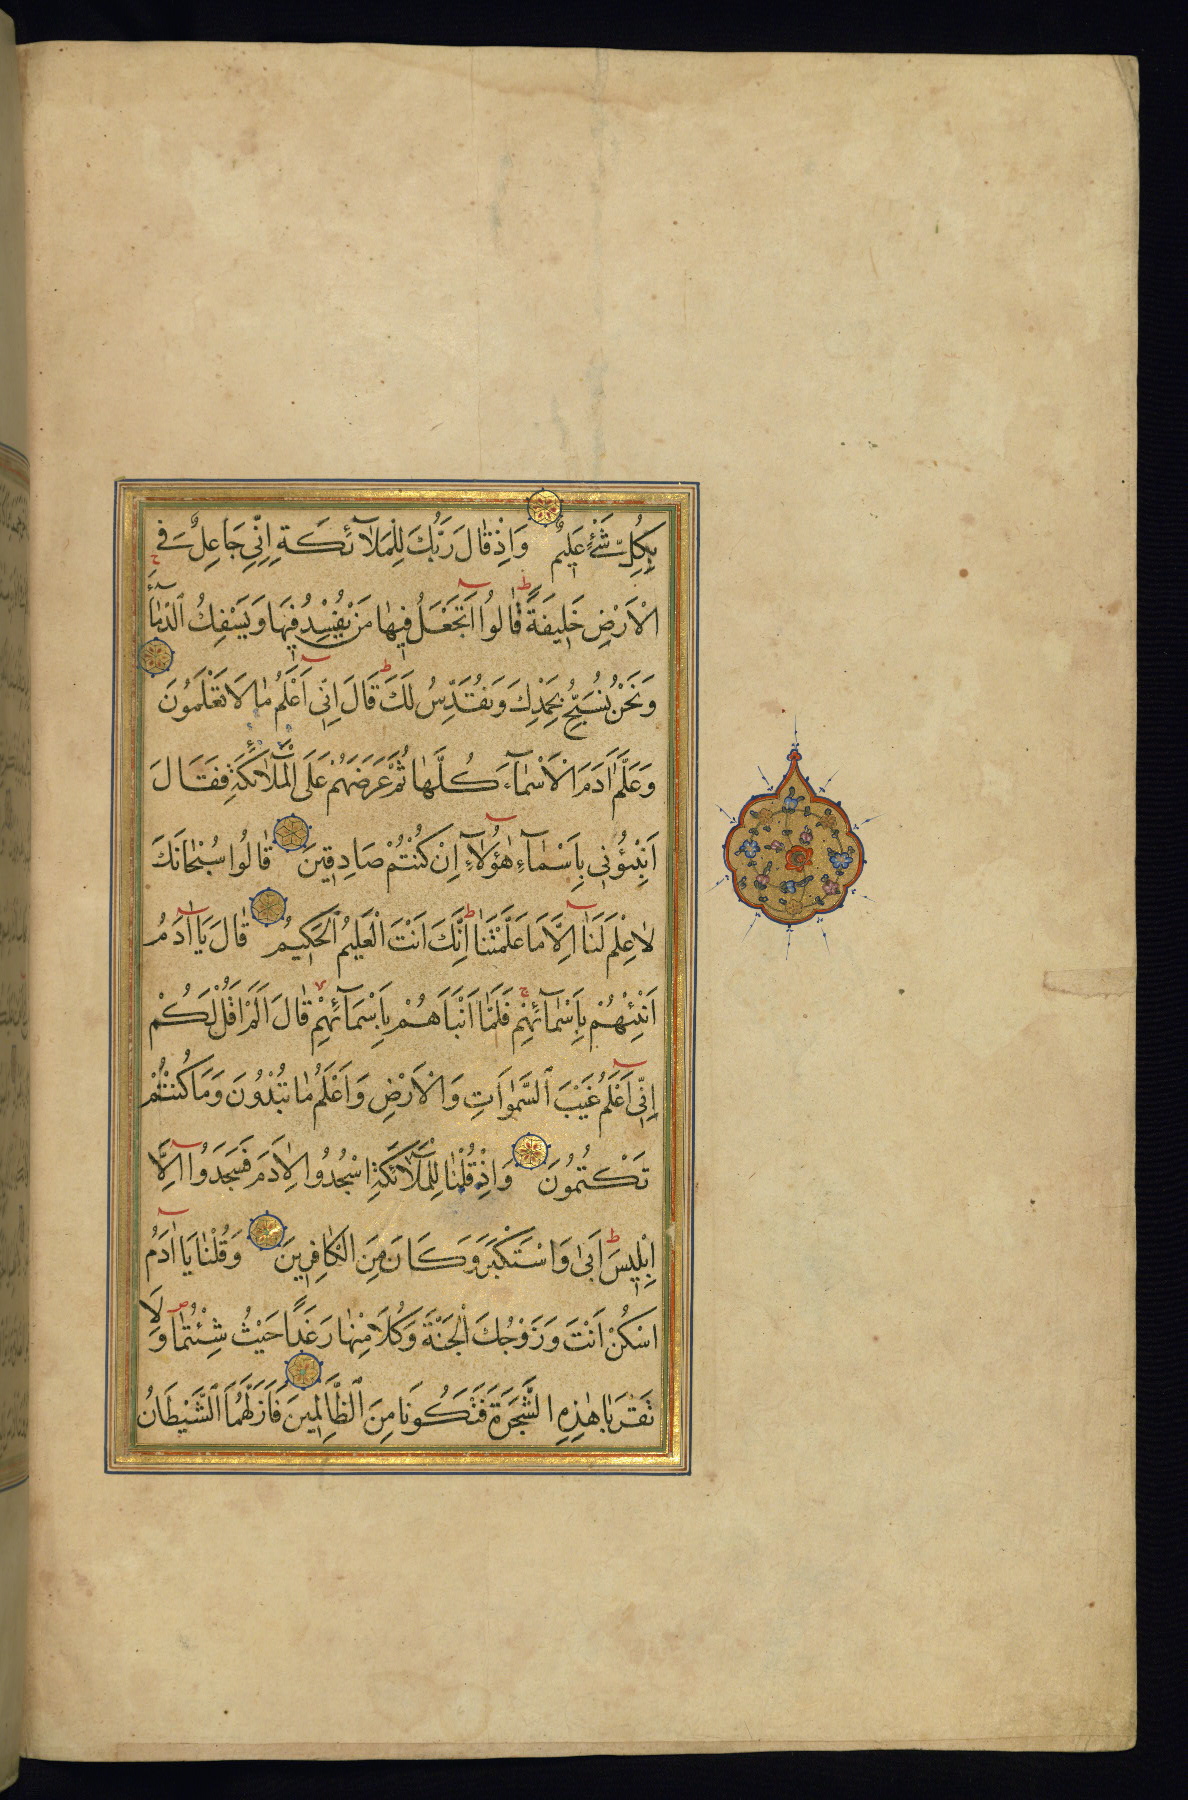 بِكُلِّ شَيْءٍ عَلِيمٌ وَاِذْ قَالَ رَبُّكَ لِلْمَلَآئِكَةِ اِنِّي جَاعِلٌ فِي
الْاَرْضِ خَلِيفَةً قَالُوا اَتَجْعَلُ فِيهَا مَنْ يُفْسِدُ فِيهَا وَيَسْفِكُ الدِّمَآءَ
وَنَحْنُ نُسَبِّحُ بِحَمْدِكَ وَنُقَدِّسُ لَكَ قَالَ اِنِّي اَعْلَمُ مَا لَا تَعْلَمُونَ
وَعَلَّمَ اٰدَمَ الْاَسْمَآءَ كُلَّهَا ثُمَّ عَرَضَهُمْ عَلَى الْمَلَآئِكَةِ فَقَالَ
اَنْبِئُونِي بِاَسْمَآءِ هٰؤُلَآءِ اِنْ كُنْتُمْ صَادِقِينَ قَالُوا سُبْحَانَكَ
لَا عِلْمَ لَنَا اِلَّا مَا عَلَّمْتَنَا اِنَّكَ اَنْتَ الْعَلِيمُ الْحَكِيمُ قَالَ يَا اٰدَمُ
اَنْبِئْهُمْ بِاَسْمَآئِهِمْ فَلَمَّا اَنْبَاَهُمْ بِاَسْمَآئِهِمْ قَالَ اَلَمْ اَقُلْ لَكُمْ
اِنِّي اَعْلَمُ غَيْبَ السَّمٰوَاتِ وَالْاَرْضِ وَاَعْلَمُ مَا تُبْدُونَ وَمَا كُنْتُمْ
تَكْتُمُونَ وَاِذْ قُلْنَا لِلْمَلَآئِكَةِ اسْجُدُوا لِاٰدَمَ فَسَجَدُوا اِلَّا
اِبْلِيسَ اَبٰى وَاسْتَكْبَرَ وَكَانَ مِنَ الْكَافِرِينَ وَقُلْنَا يَا اٰدَمُ
اسْكُنْ اَنْتَ وَزَوْجُكَ الْجَنَّةَ وَكُلَا مِنْهَا رَغَدًا حَيْثُ شِئْتُمَا وَلَا
تَقْرَبَا هٰذِهِ الشَّجَرَةَ فَتَكُونَا مِنَ الظَّالِمِينَ فَاَزَلَّهُمَا الشَّيْطَانُ